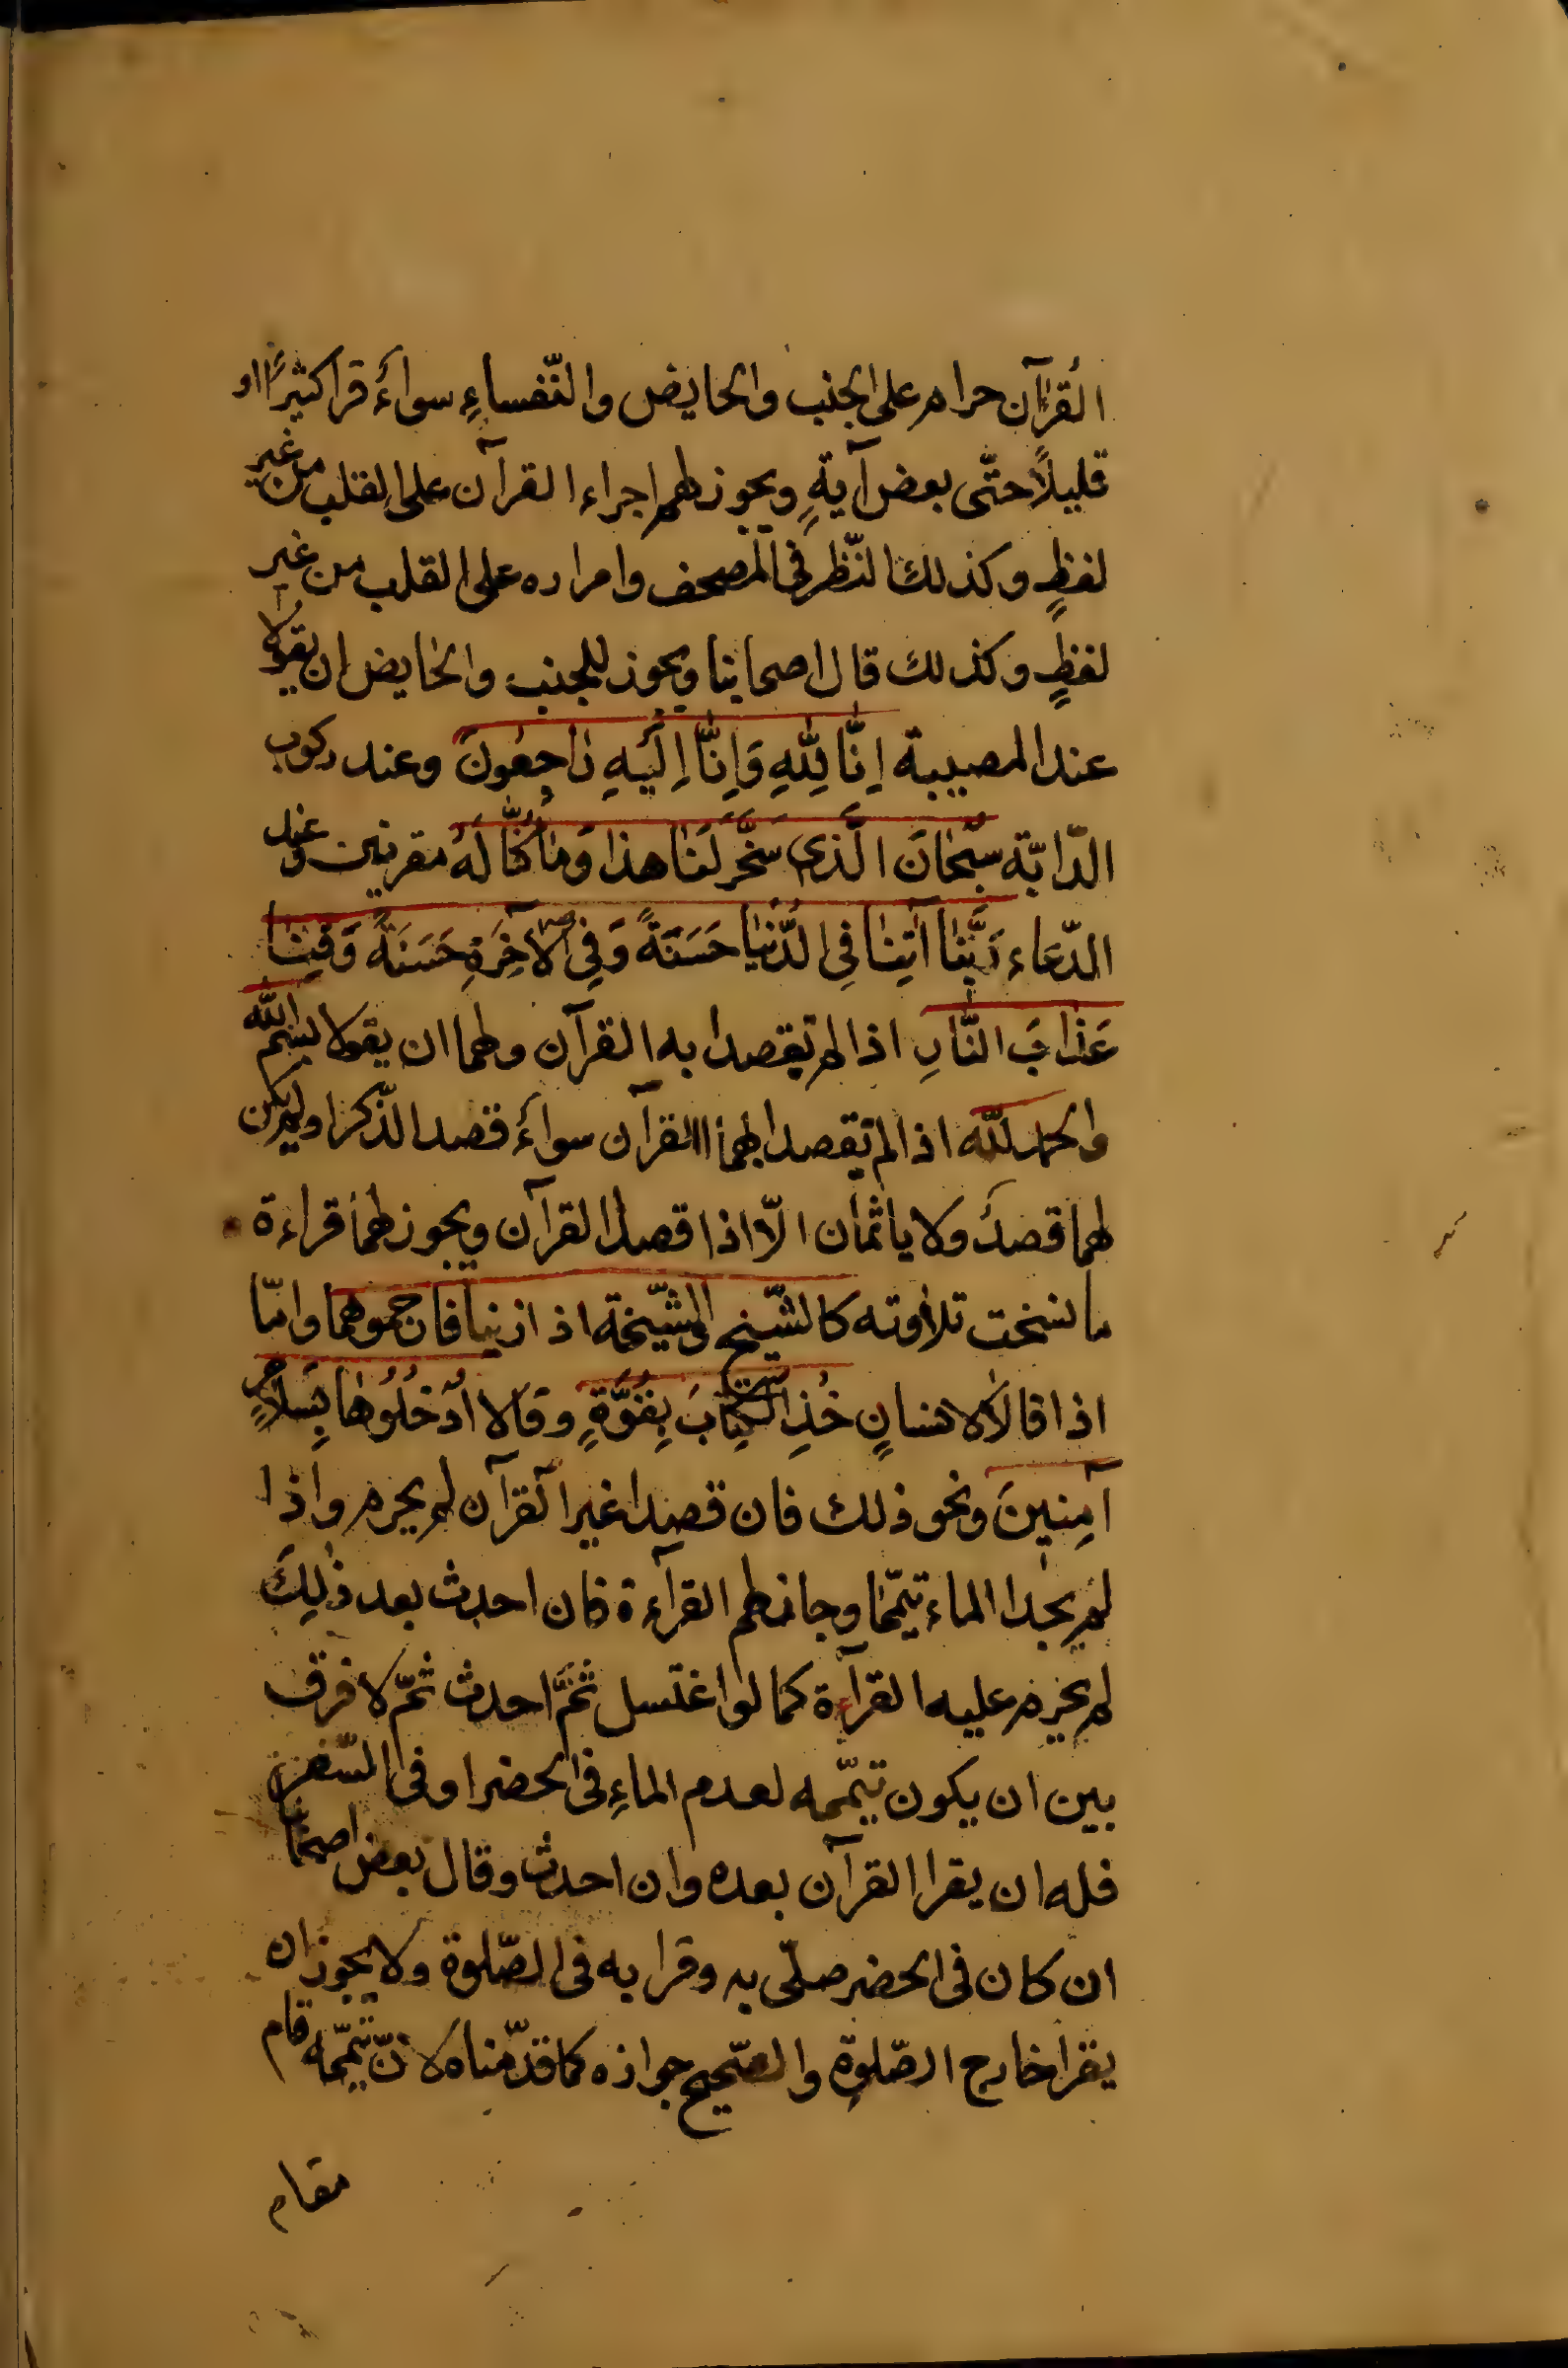 القرآن حرام على الجنب والحايض والنّفساءِ سواءً قرا كثيرًا او
قليلًا حتّى بعض آيةٍ ويجوز لهم اجراء القرآن على القلب من غير
لفظٍ وكذلك النّظر فى المصحف وامراده على القلب من غير
لفظٍ وكذلك قال اصحابنا ويجوز للجنب والحايض ان يقولا
عند المصيبة اِنَّا لِلّٰهِ وَاِنَّا اِلَيْهِ رَاجِعُونَ وعند ركوب
الدّابّة سُبْحَانَ الَّذى سَخَّرَ لَنَا هذا وَمَا كُنَّا لَهُ مقرنين وعند
الدّعاء رَبَّنَا آتِنَا فِى الدُّنْيَا حَسَنَةً وَفِى الآخِرَةِ حَسَنَةً وَقِنَا
عَذَابَ النَّارِ اذا لم يقصدا به القرآن ولهما ان يقولا بسم الله
والحمد لله اذا لم يقصدا بهما القرآن سواءً قصد الذّكر او لم يكن
لهما قصدٌ ولا ياثمان الّا اذا قصدا القرآن ويجوز لهما قراءة
ما نسخت تلاوته كالشّيخ والشّيخة اذا زنيا فارجموهما وامّا
اذا قالا لانسانٍ خُذِ الْكِتَابَ بِقُوَّةٍ وقالا اُدْخُلُوهَا بِسَلَامٍ
آمِنِينَ ونحو ذلك فان قصدا غير القرآن لم يحرم واذا
لم يجدا الماء تيمّما وجاز لهم القرآءة فان احدث بعد ذٰلِكَ
لم يحرم عليه القرآءة كما لو اغتسل ثُمَّ احدث ثمّ لا فرق
بين ان يكون تيمّمه لعدم الماءِ فى الحضر او فى السّفر
فله ان يقرا القرآن بعده وان احدث وقال بعض اصحابنا
ان كان فى الحضر صلّى به وقرا به فى الصّلوة ولا يجوز ان
يقرا خارج الصّلوة والصّحيح جوازه كما قدّمناه لانّ تيمّمه قام
مقام